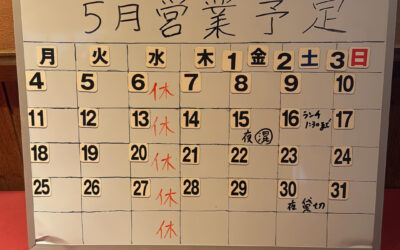 5月営業予定
月 火 水 木 1 金 2 土 3 日
4 5 6 休 7 8 9 10
11 12 13 休 14 15 16 ランチ 17
夜 混 1:30まで
18 19 20 休 21 22 23 24
25 26 27 休 28 29 30 31
夜 貸切
休